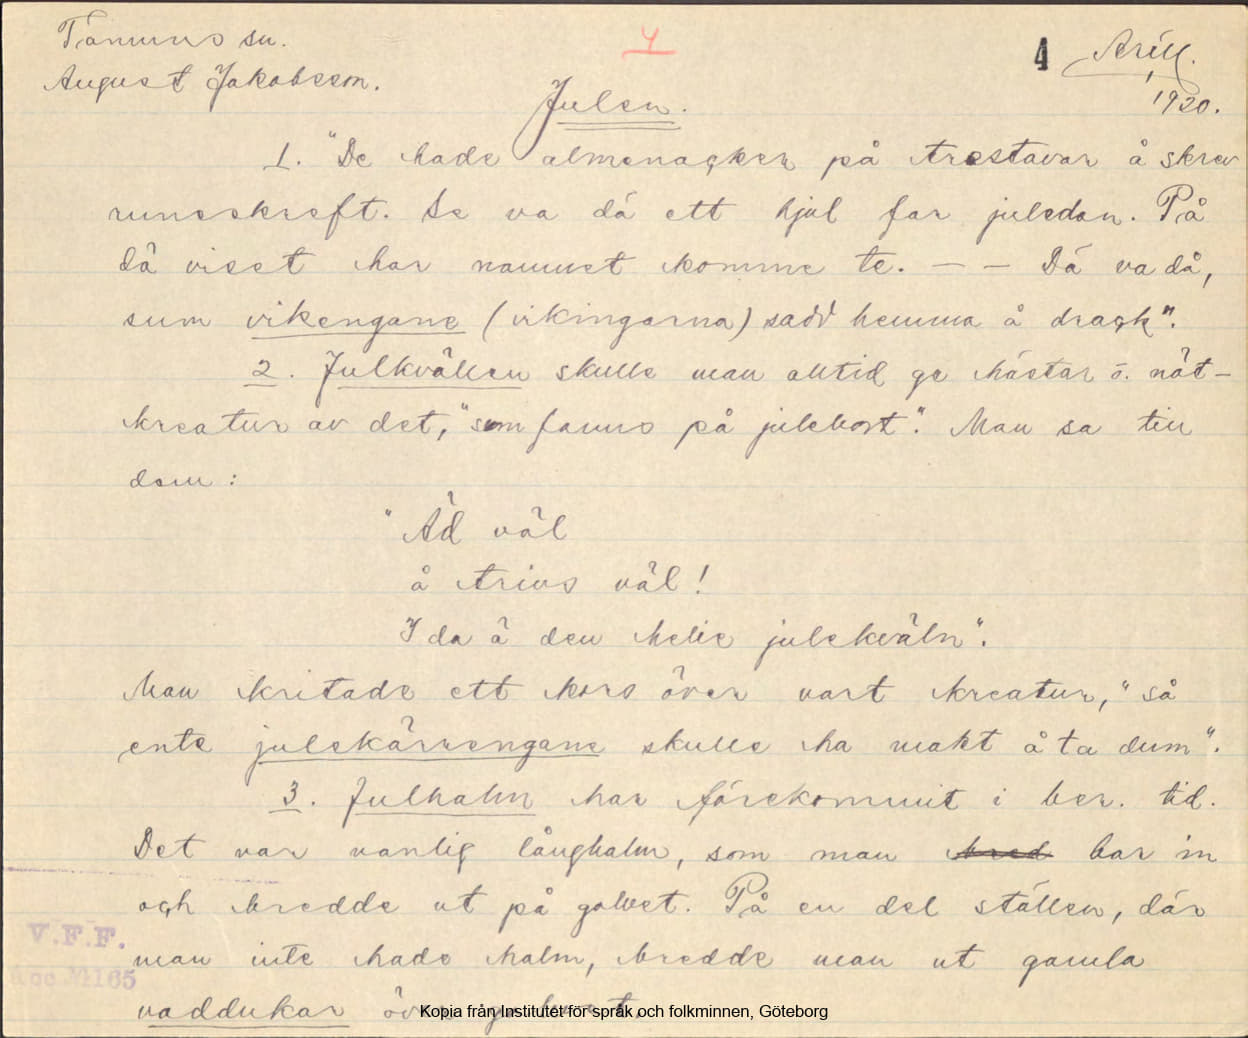 Tanums sn.
August Jakobsson.
4
4
Arill.
1920.
Julen.
1. "De hade almenacker på trestavar å skrev
runeskreft. De va då ett hjul far juledan. På
dä viset har namnet komme te. — — Dä va då,
sum vikengane (vikingarna) sadd hemma å drack".
2. Julkvällen skulle man alltid ge hästar o. nöt-
kreatur av det, "som fanns på julebort". Man sa till
dem:
"Äd väl
å driv väl!
I da ä den helie julekväln".
Man kritade ett kors över vart kreatur, "så
ente julekärrengane skulle ha makt å ta dum".
3. Julhalm har förekommit i ber. tid.
Det var vanlig långhalm, som man bred bar in
och bredde ut på golvet. På en del ställen, där
man inte hade halm, bredde man ut gamla
vaddukar
V.F.F.
Acc. VII 65
Kopia från Institutet för språk och folkminnen, Göteborg